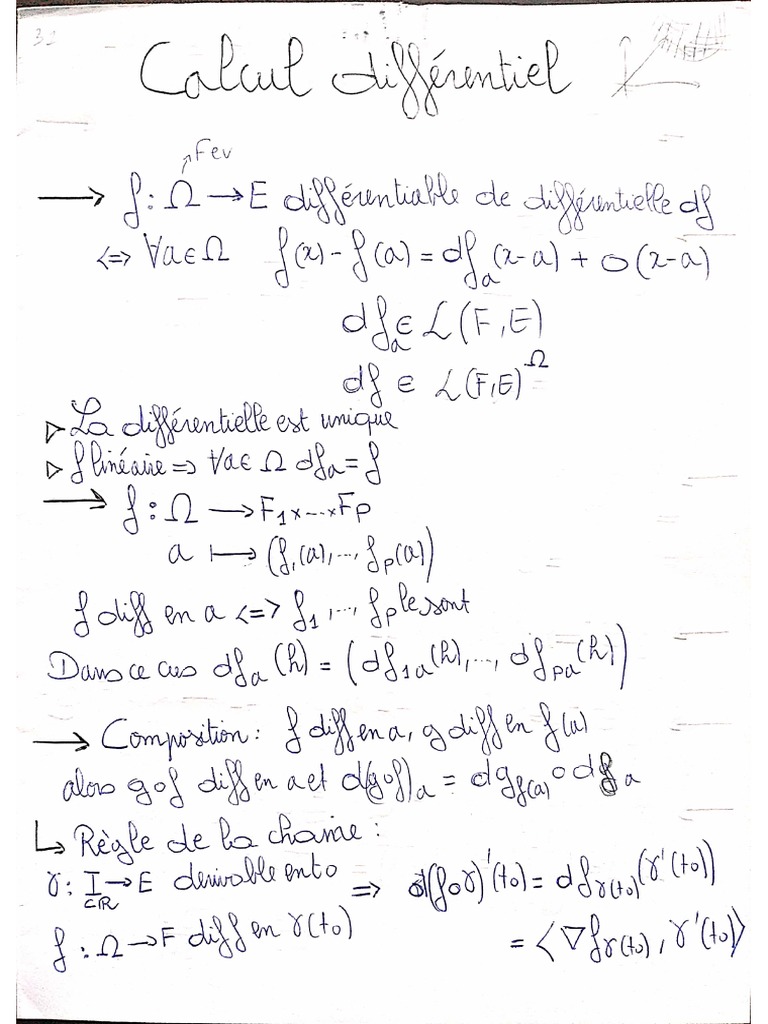 32
Calcul différentiel
↗Fev
→ f : Ω → E différentiable de différentielle df
<=> ∀a∈Ω f(x) - f(a) = df_a(x-a) + o(x-a)
df_a ∈ L(F,E)
df ∈ L(F,E)^Ω
▷ La différentielle est unique
▷ f linéaire => ∀a∈ Ω df_a = f
→ f : Ω → F_1×...×F_p
a ↦ (f_1(a),..., f_p(a))
f diff en a <=> f_1,..., f_p le sont
Dans ce cas df_a(h) = (df_1a(h),..., df_pa(h))
→ Composition : f diff en a, g diff en f(a)
alors gof diff en a et d(gof)_a = dg_f(a) o df_a
↳ Règle de la chaine :
γ : I → E derivable en t_0 => (foγ)'(t_0) = df_γ(t_0)(γ'(t_0))
⊂ℝ
f : Ω → F diff en γ(t_0) = ⟨∇f_γ(t_0), γ'(t_0)⟩